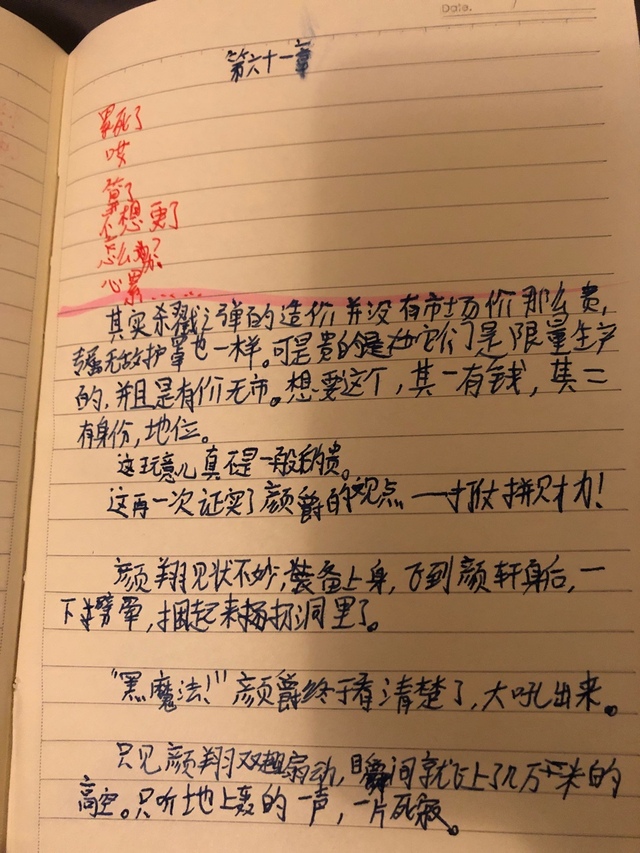 Date.
第六十一章
累死了
哎
算了
不想更了
怎么办?
心累……
其实杀戮之弹的造价并没有市场价那么贵,
专属无敌护罩也一样。可是贵的是它们是限量生产
的,并且是有价无市。想要这个,其一有钱,其二
有身份,地位。
这玩意儿真不是一般的贵。
这再一次证实了颜爵的观点——打仗拼财力!
颜翔见状不妙,装备上身,飞到颜轩身后,一
下劈晕,捆起来扬扔洞里了。
"黑魔法!"颜爵终于看清楚了,大吼出来。
只见颜翔双翅扇动,瞬间就飞上了几万千米的
高空。只听地上轰的一声,一片死寂。